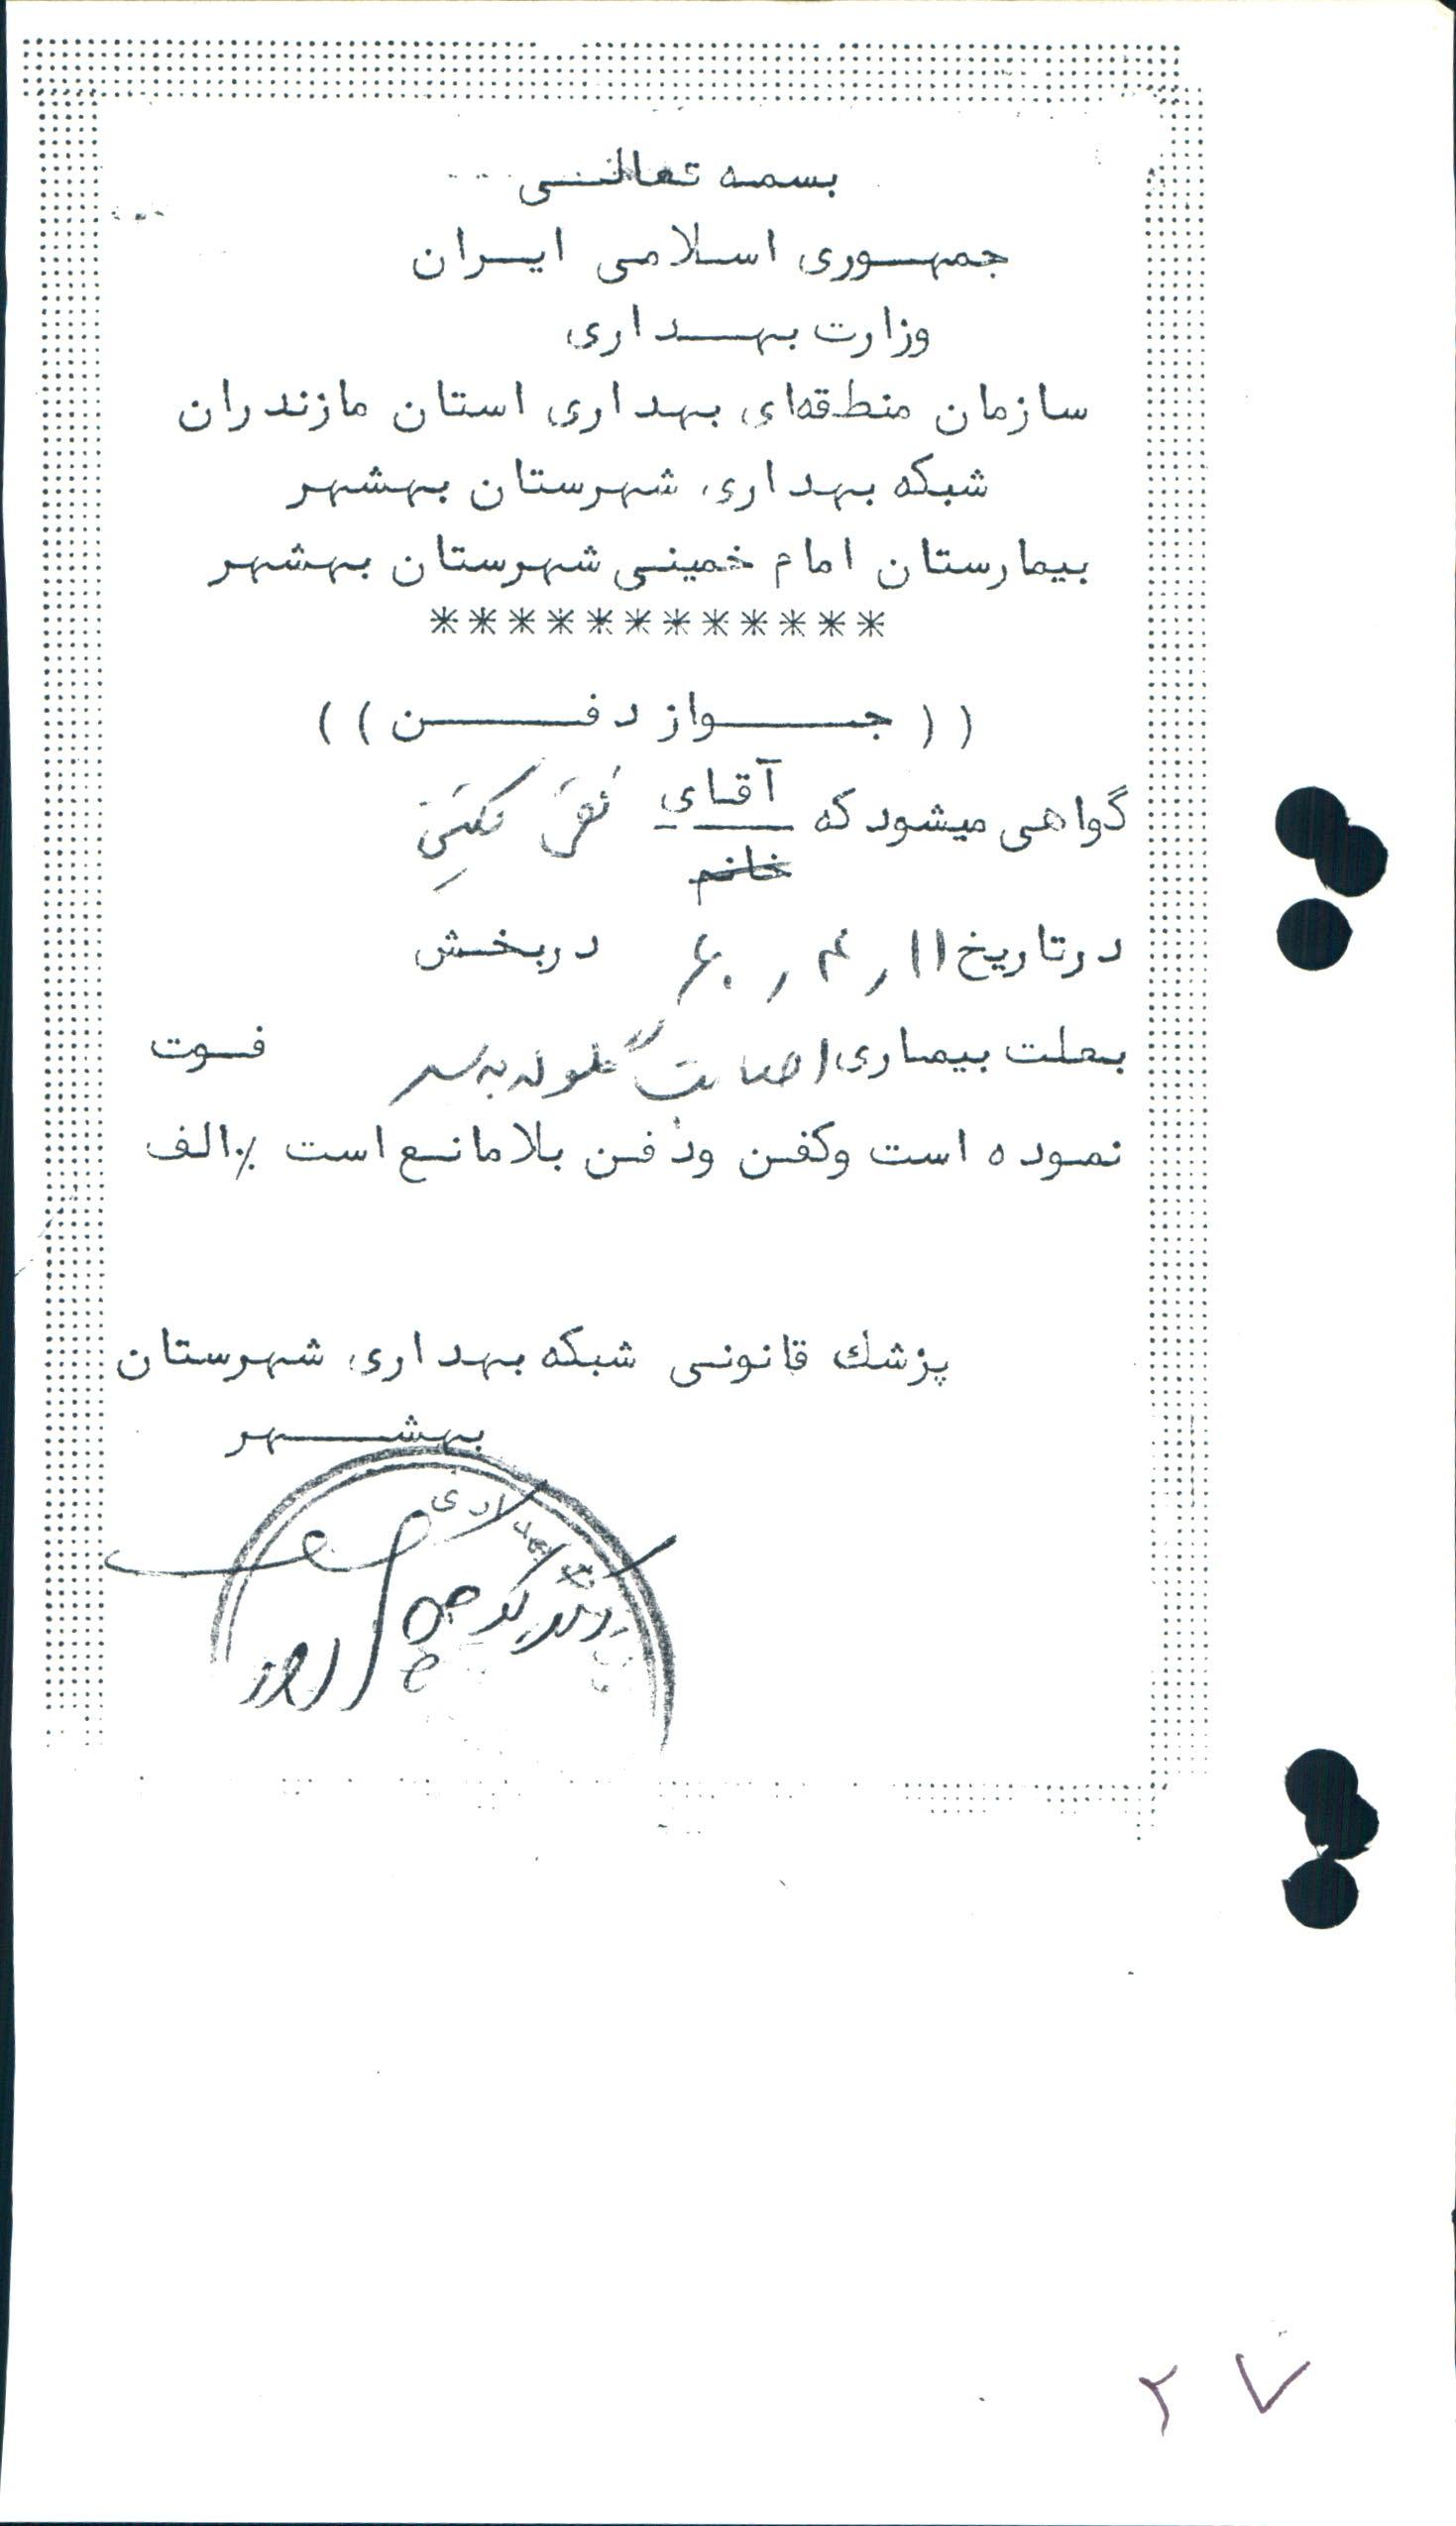 بسمه تعالی
جمهوری اسلامی ایران
وزارت بهداری
سازمان منطقه‌ای بهداری استان مازندران
شبکه بهداری شهرستان بهشهر
بیمارستان امام خمینی شهرستان بهشهر
************
((جواز دفن))
گواهی میشود که آقای
خانم
درتاریخ ۱۱ , ۴ , ۶۰ دربخش
بعلت بیماری اصابت گلوله به سر فوت
نموده است وکفن ودفن بلامانع است ٪الف
پزشك قانونی شبکه بهداری شهرستان
بهشهر
۲ ۷